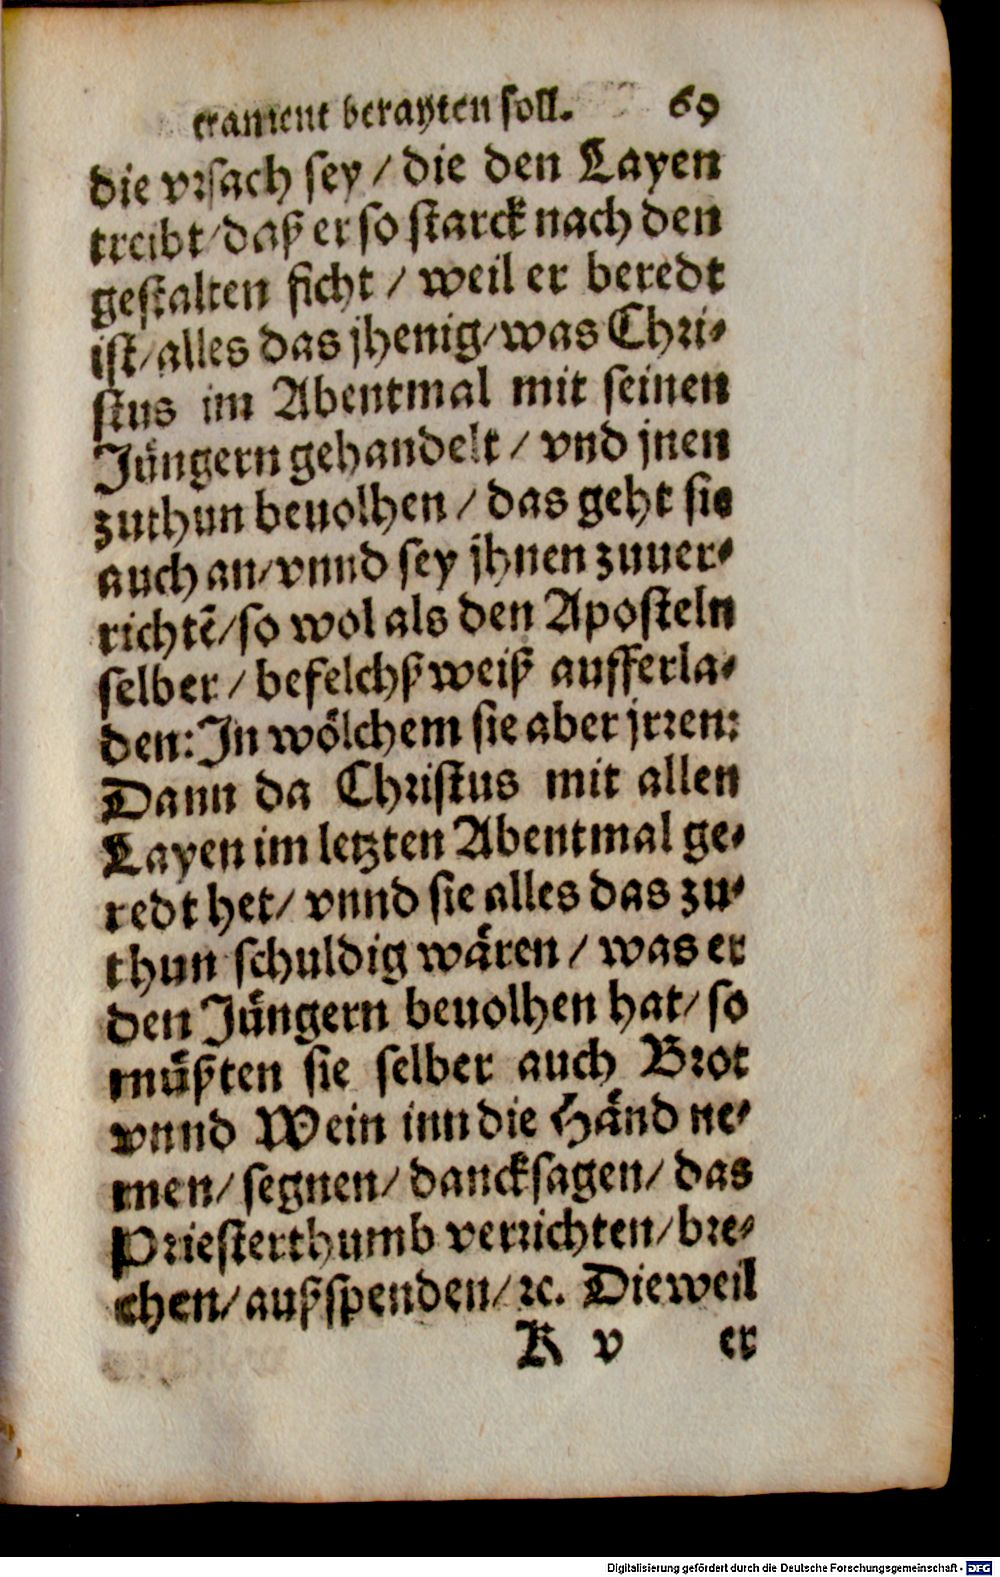 crament berayten soll. 69
die vrsach sey / die den Layen
treibt / daß er so starck nach den
gestalten ficht / weil er beredt
ist / alles das jhenig / was Chri-
stus im Abentmal mit seinen
Jüngern gehandelt / vnd jnen
zuthun beuolhen / das geht sie
auch an / vnnd sey jhnen zuuer-
richtẽ / so wol als den Aposteln
selber / befelchßweiß aufferla-
den: In wölchem sie aber jrren:
Dann da Christus mit allen
Layen im letzten Abentmal ge-
redt het / vnnd sie alles das zu-
thun schuldig wären / was er
den Jüngern beuolhen hat / so
müßten sie selber auch Brot
vnnd Wein inn die Händ ne-
men / segnen / dancksagen / das
Priesterthumb verrichten / bre-
chen / außspenden / ꝛc. Dieweil
K v er
Digitalisierung gefördert durch die Deutsche Forschungsgemeinschaft - DFG